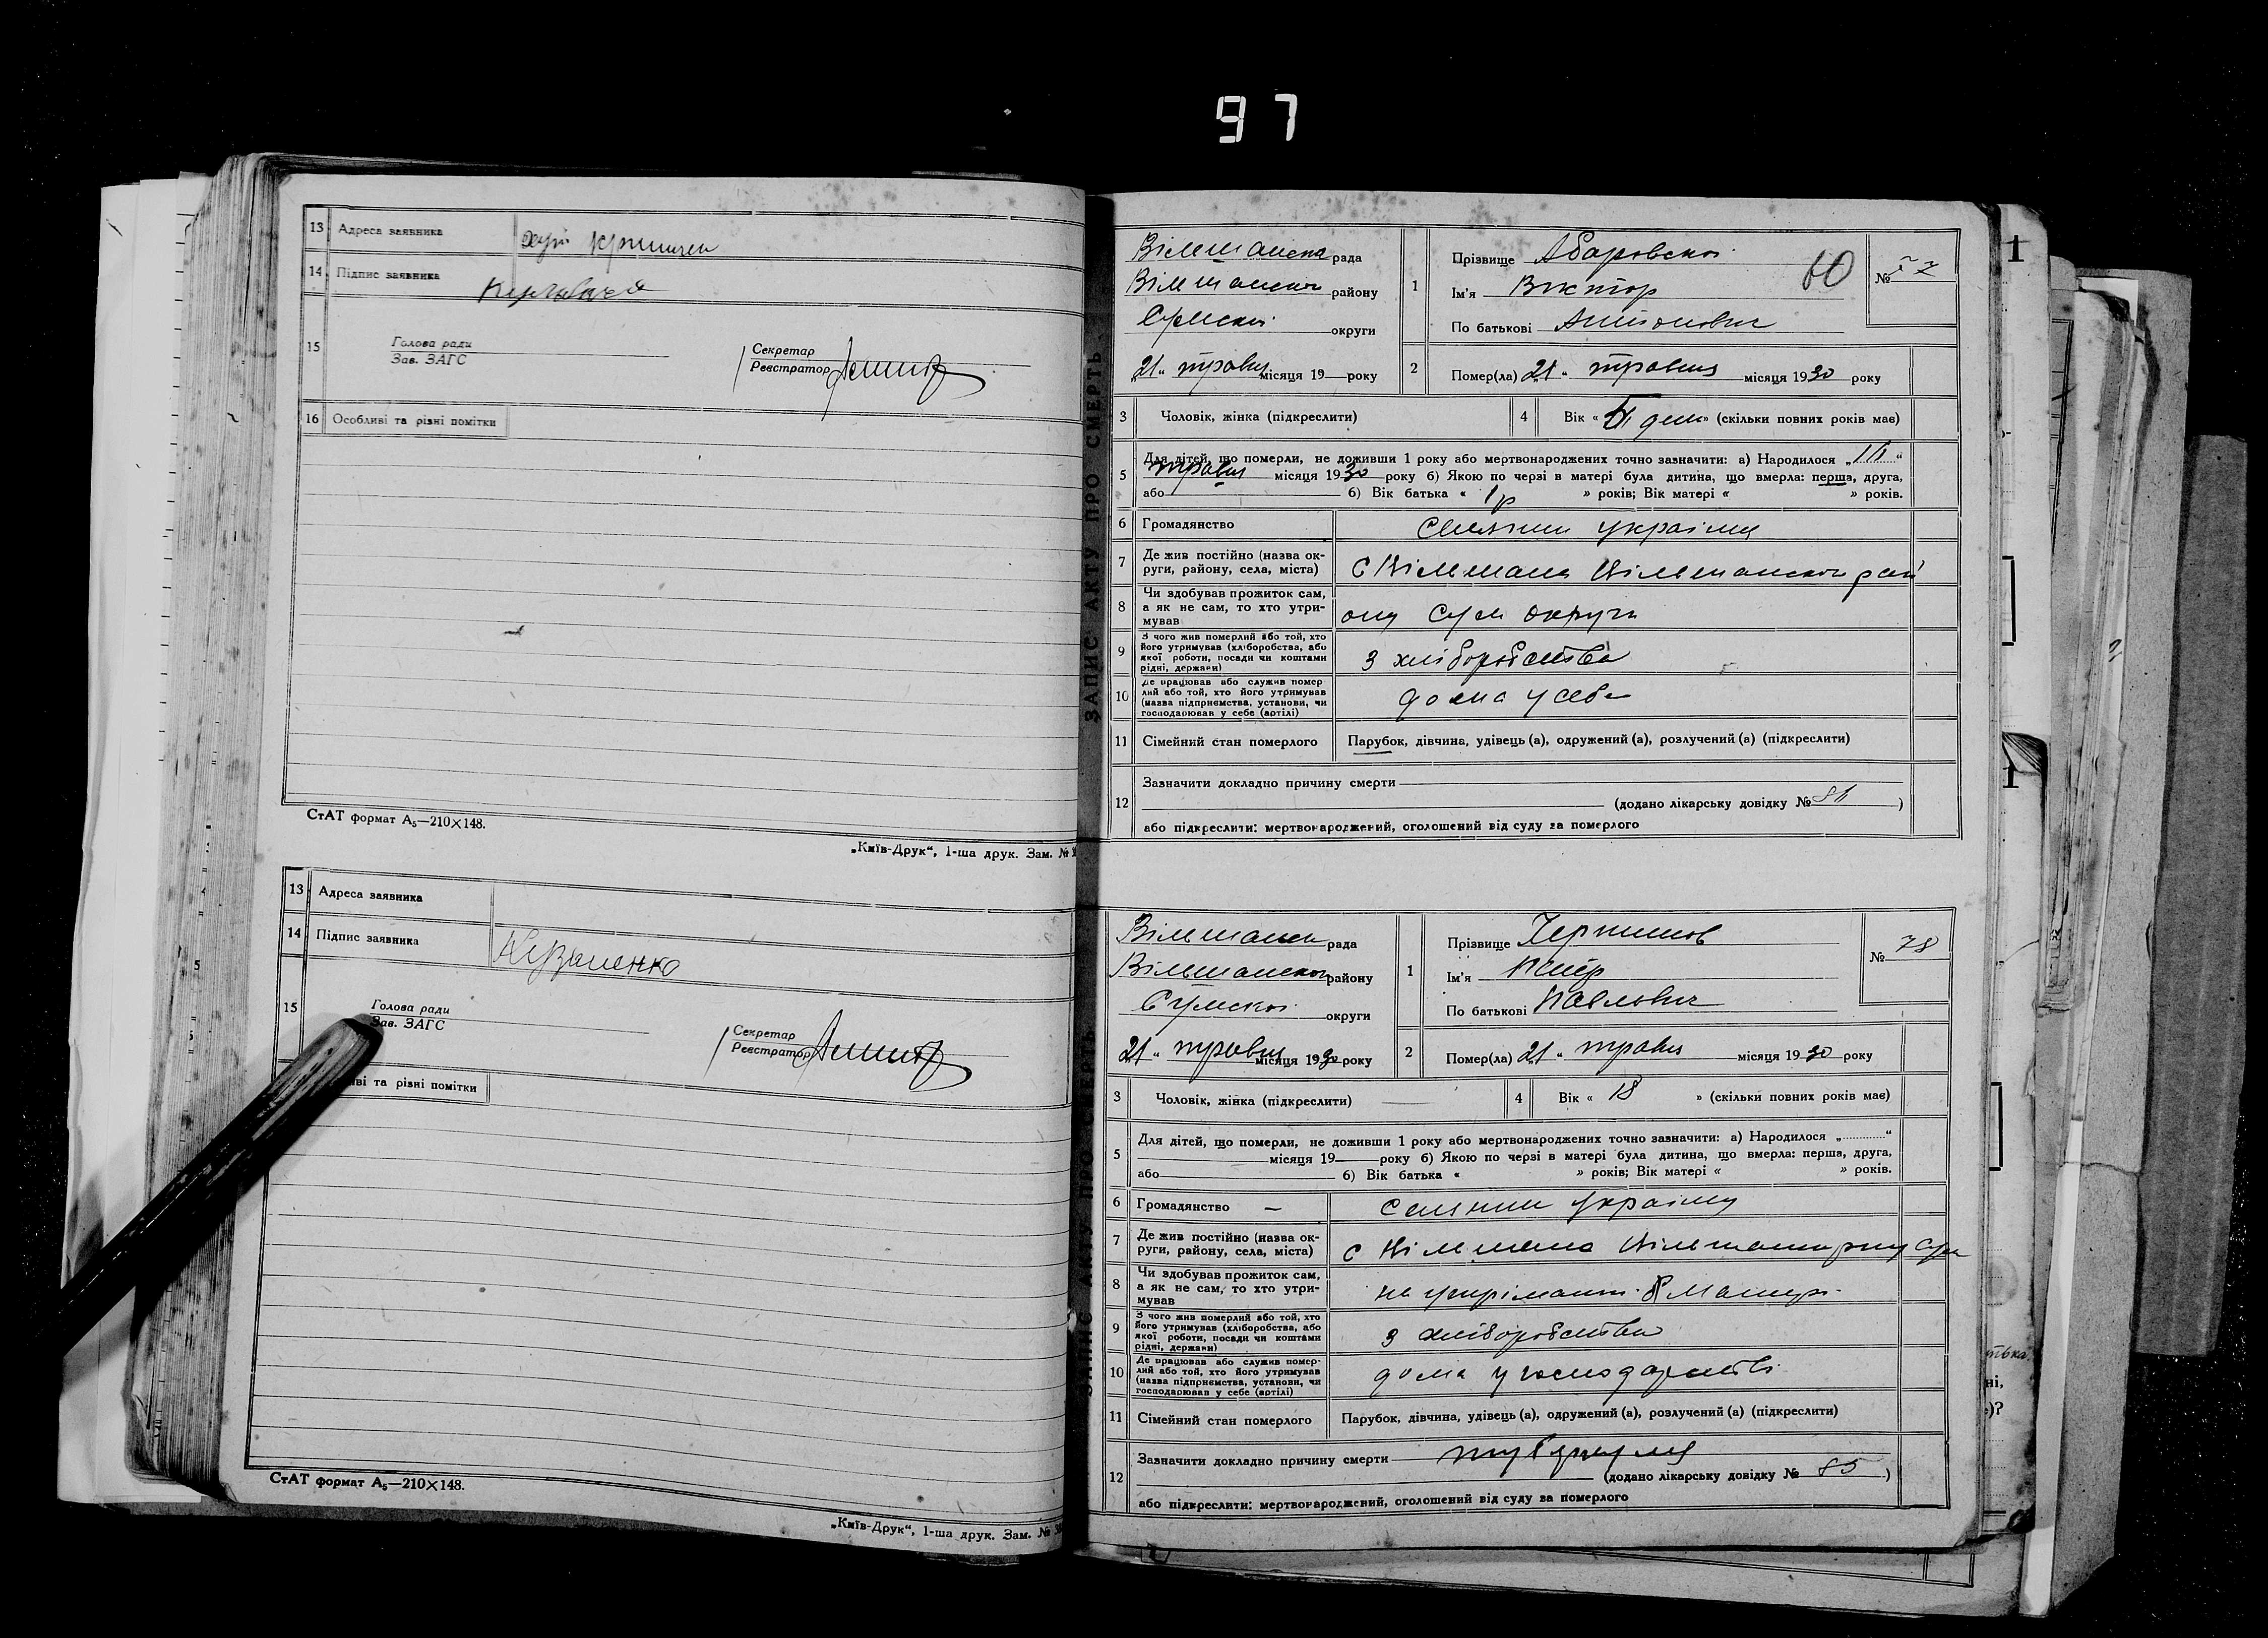 97
13 Адреса заявника хут.
14 Підпис заявника
15 Голова ради
Зав. ЗАГС
Секретар
Реєстратор
16 Особливі та різні помітки
СтАТ формат А₅—210×148.
„Київ-Друк“, 1-ша друк. Зам. №
13 Адреса заявника
14 Підпис заявника
15 Голова ради
Зав. ЗАГС
Секретар
Реєстратор
та різні помітки
СтАТ формат А₅—210×148.
„Київ-Друк“, 1-ша друк. Зам. №
ЗАПИС АКТУ ПРО СМЕРТЬ
Вільшанська рада
Вільшанського району
Сумської округи
„21“ травня місяця 19 року
1 Прізвище
Ім'я Віктор
По батькові Антонович
60
№ 77
2 Помер(ла) 21 “ травня місяця 1930 року
3 Чоловік, жінка (підкреслити)
4 Вік « днів» (скільки повних років має)
5 Для дітей, що померли, не доживши 1 року або мертвонароджених точно зазначити: а) Народилося „ “
травня місяця 1930 року б) Якою по черзі в матері була дитина, що вмерла: перша, друга,
або б) Вік батька « » років; Вік матері « » років.
6 Громадянство україни
7 Де жив постійно (назва округи, району, села, міста) с Вільшана Вільшанського рай
8 Чи здобував прожиток сам, а як не сам, то хто утримував ону Сум округи
9 З чого жив померлий або той, хто його утримував (хліборобства, або якої роботи, посади чи коштами рідні, держави) з хліборобства
10 Де працював або служив померлий або той, хто його утримував (назва підприємства, установи, чи господарював у себе (артілі) дома у себе
11 Сімейний стан померлого Парубок, дівчина, удівець (а), одружений (а), розлучений (а) (підкреслити)
12 Зазначити докладно причину смерти
(додано лікарську довідку № )
або підкреслити: мертвонароджений, оголошений від суду за померлого
ЗАПИС АКТУ ПРО СМЕРТЬ
рада
Вільшанського району
Сумської округи
21 “ травня місяця 1930 року
1 Прізвище
Ім'я Петр
По батькові Павлович
№ 78
2 Помер(ла) 21 “ травня місяця 1930 року
3 Чоловік, жінка (підкреслити)
4 Вік « 18 » (скільки повних років має)
5 Для дітей, що померли, не доживши 1 року або мертвонароджених точно зазначити: а) Народилося „ “
місяця 19 року б) Якою по черзі в матері була дитина, що вмерла: перша, друга,
або б) Вік батька « » років; Вік матері « » років.
6 Громадянство — україни
7 Де жив постійно (назва округи, району, села, міста) с Вільшана
8 Чи здобував прожиток сам, а як не сам, то хто утримував на
9 З чого жив померлий або той, хто його утримував (хліборобства, або якої роботи, посади чи коштами рідні, держави) з хліборобства
10 Де працював або служив померлий або той, хто його утримував (назва підприємства, установи, чи господарював у себе (артілі) дома у господарстві
11 Сімейний стан померлого Парубок, дівчина, удівець (а), одружений (а), розлучений (а) (підкреслити)
12 Зазначити докладно причину смерти
(додано лікарську довідку № 85 )
або підкреслити: мертвонароджений, оголошений від суду за померлого